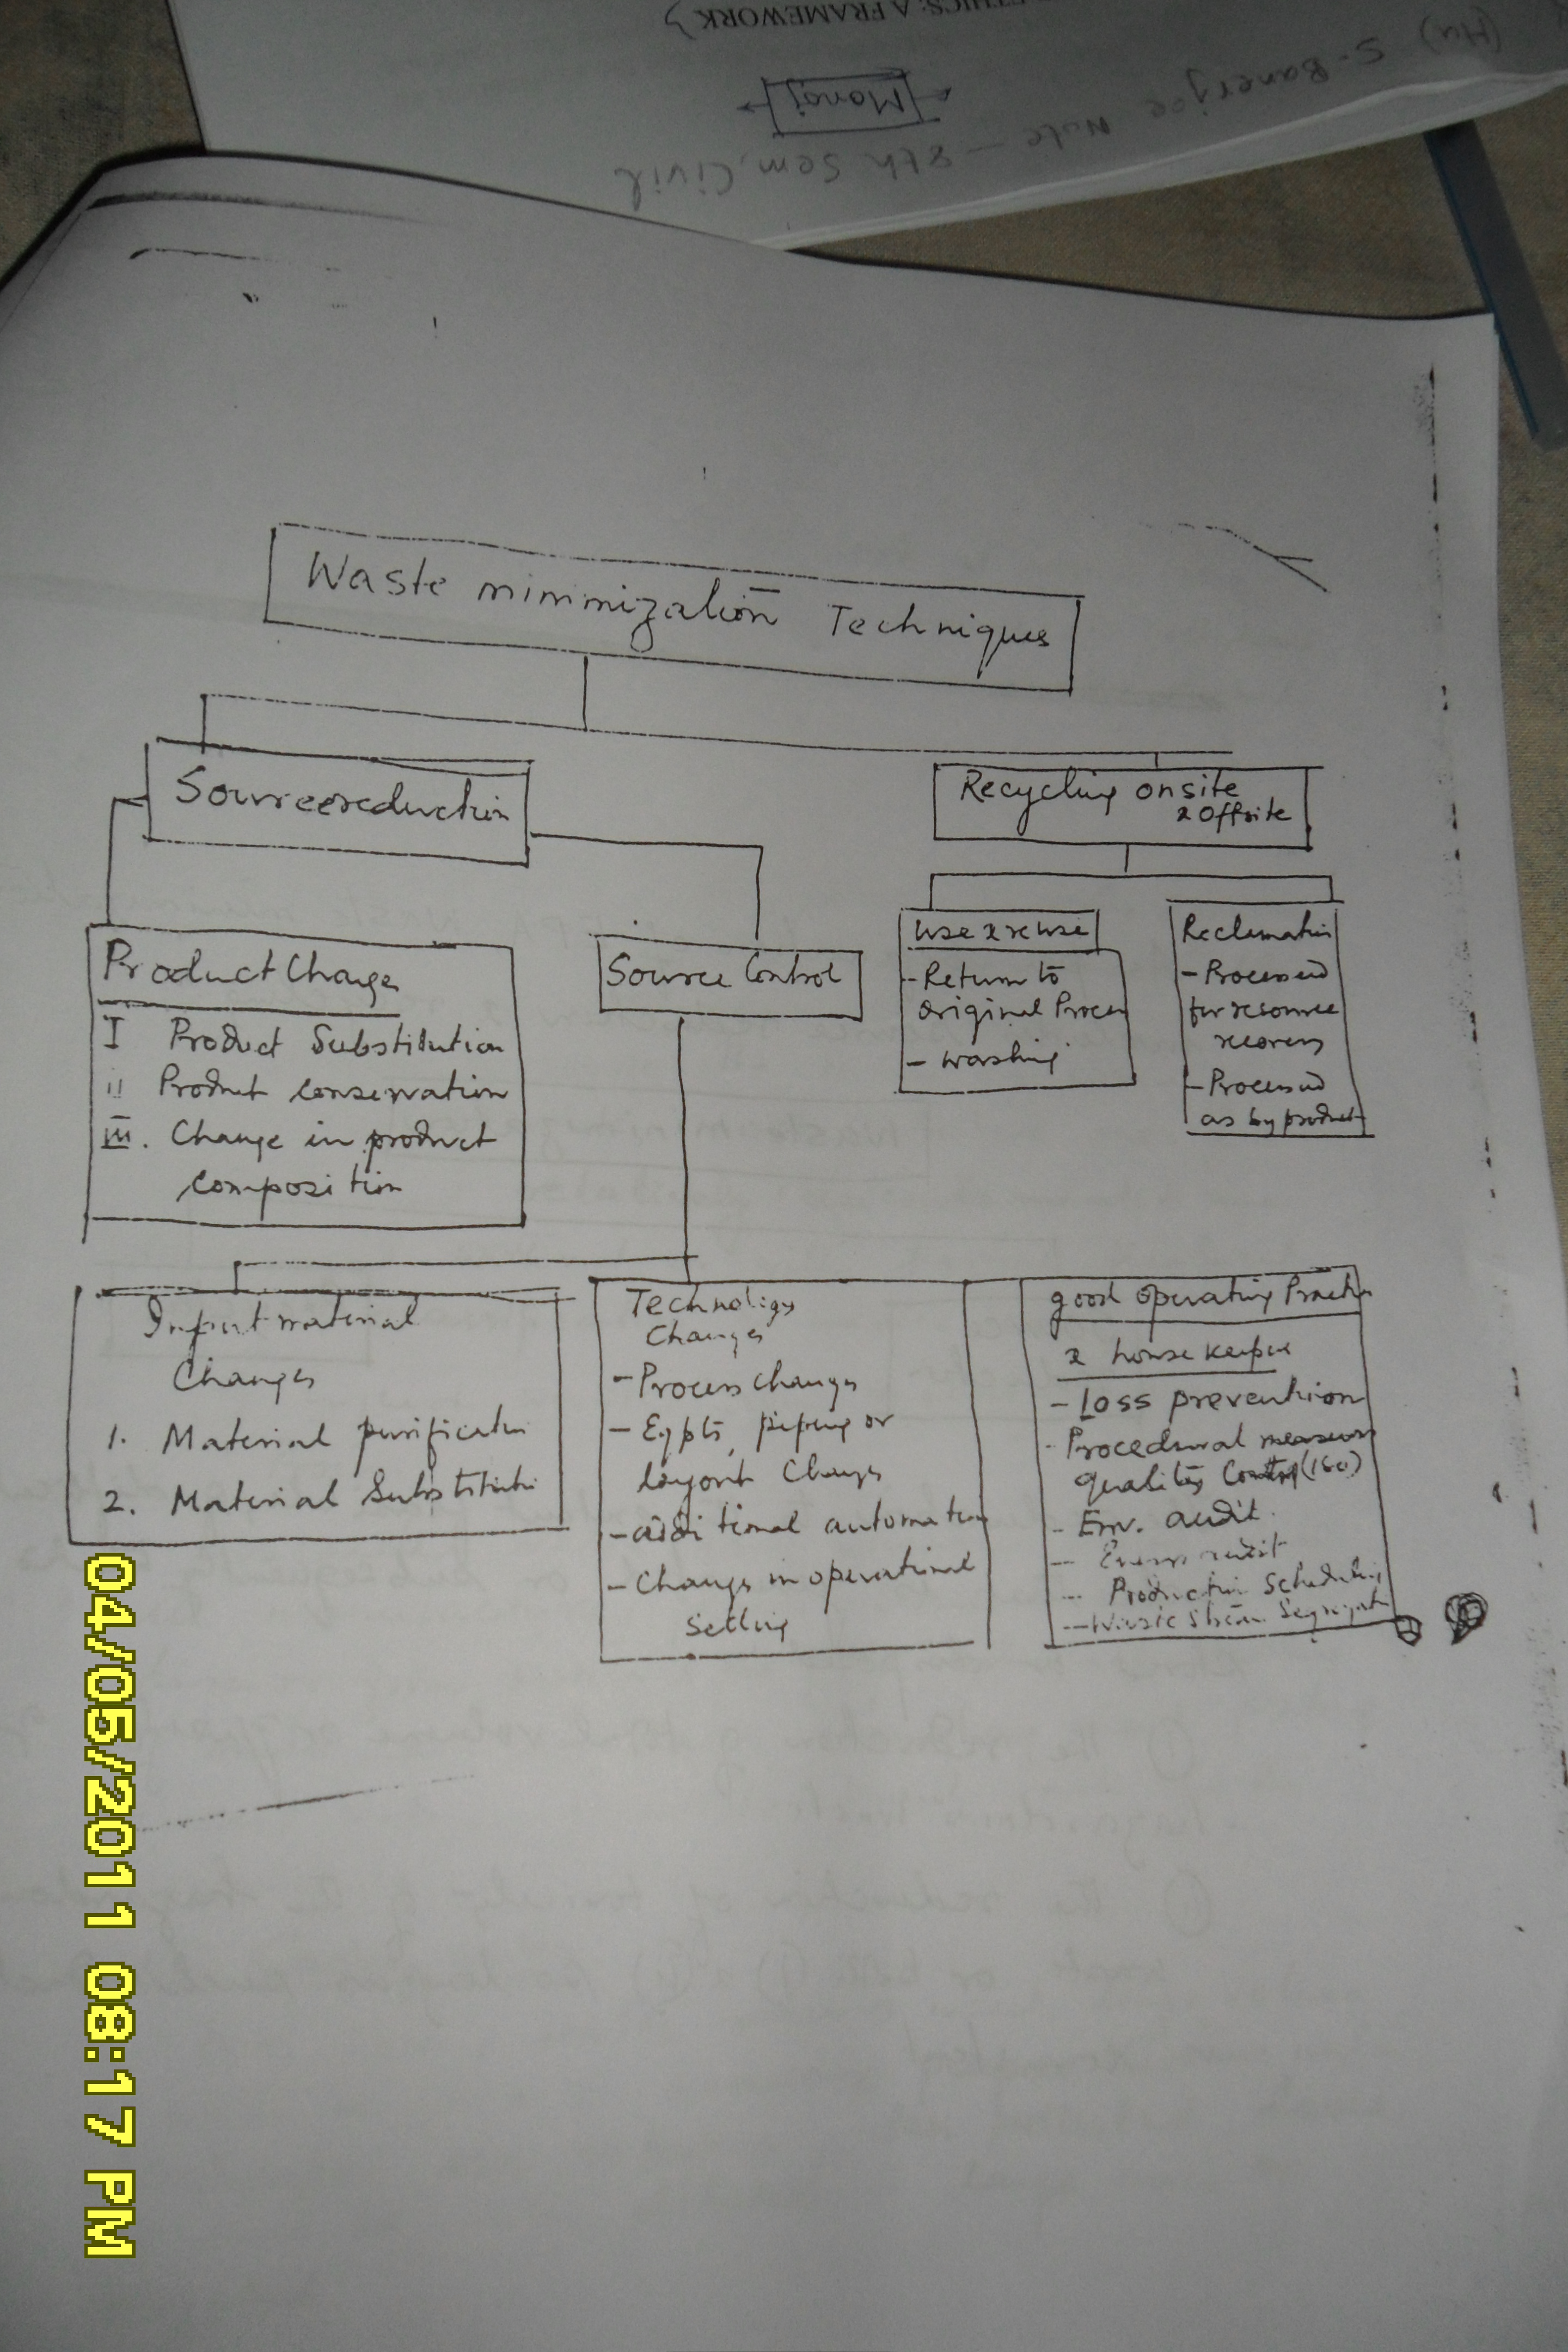 ETHICS: A FRAMEWORK }
Manoj
S. Banerjee Note - 8th Sem. Civil
(Hu)
Waste minimization Techniques
Source reduction
Recycling onsite
& Offsite
Product Change
I Product Substitution
ii Product conservation
iii. Change in product
composition
Source Control
Use & reuse
- Return to
original Process
- washing
Reclamation
- Processed
for resource
recovery
- Processed
as by product
Input material
Changes
1. Material purification
2. Material Substitution
Technology
Changes
- Process changes
- Eqpts, piping or
layout Changes
- additional automation
- Changes in operational
setting
good operating Practice
& house keeping
- Loss prevention
- Procedural measures
quality Control (ISO)
- Env. audit.
- Energy audit
- Production Scheduling
- Waste stream Segregation
04/05/2011 08:17 PM